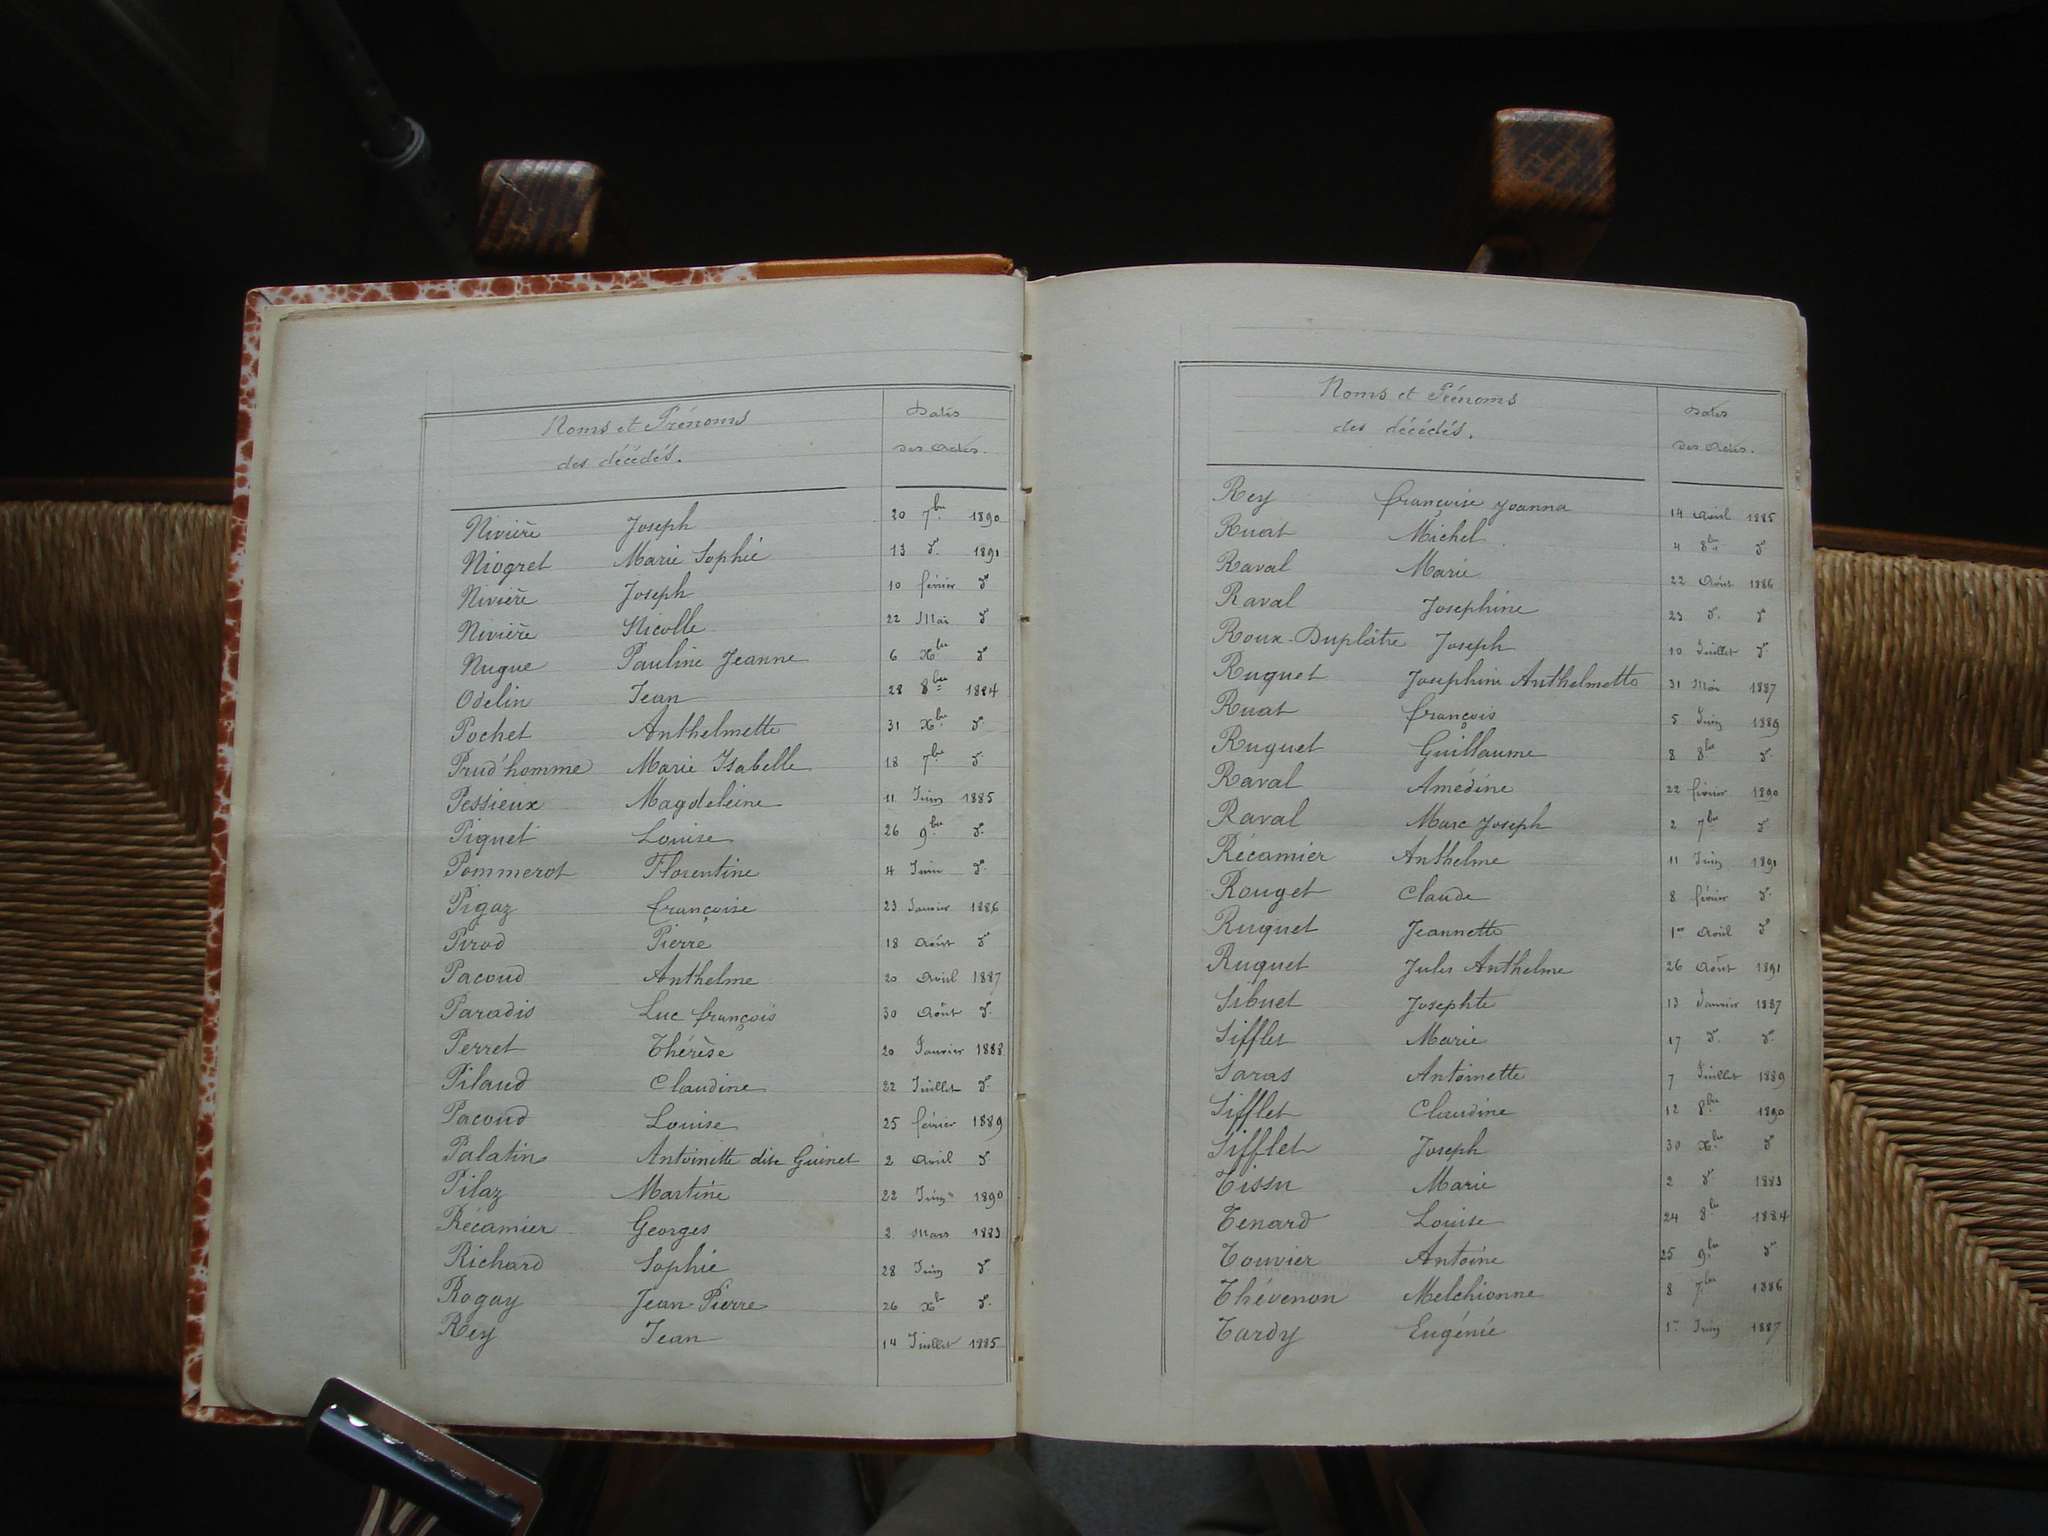 Noms et Prénoms
des décédés.
Dates
des Actes.
Nivière Joseph 20 7bre 1890
Niogret Marie Sophie 13 d° 1891
Nivière Joseph 10 février d°
Nivière Nicolle 22 Mai d°
Nugue Pauline Jeanne 6 Xbre d°
Odelin Jean 28 8bre 1884
Pochet Anthelmette 31 Xbre d°
Prud'homme Marie Isabelle 18 7bre d°
Pessieux Magdeleine 11 Juin 1885
Piquet Louise 26 9bre d°
Pommerot Florentine 4 Juin d°
Pigaz françoise 23 Janvier 1886
Pirod Pierre 18 Août d°
Pacoud Anthelme 20 Avril 1887
Paradis Luc françois 30 Août d°
Perret Thérèse 20 Janvier 1888
Pilaud Claudine 22 Juillet d°
Pacoud Louise 25 février 1889
Palatin Antoinette dite Guinet 2 Avril d°
Pilaz Martine 22 Juin 1890
Récamier Georges 2 Mars 1883
Richard Sophie 28 Juin d°
Rogay Jean-Pierre 26 Xbre d°
Rey Jean 14 Juillet 1885
Noms et Prénoms
des décédés.
Dates
des Actes.
Rey françoise Joanna 14 Avril 1885
Ruat Michel 4 8bre d°
Raval Marie 22 Août 1886
Raval Josephine 23 d° d°
Roux-Duplâtre Joseph 10 Juillet d°
Ruguet Josephine Anthelmette 31 Mai 1887
Ruat françois 5 Juin 1889
Ruguet Guillaume 8 8bre d°
Raval Amédine 22 février 1890
Raval Marc Joseph 2 7bre d°
Récamier Anthelme 11 Juin 1891
Rouget Claude 8 février d°
Ruguet Jeannette 1er Avril d°
Ruguet Jules Anthelme 26 Août 1891
Sibuet Josephte 13 Janvier 1887
Sifflet Marie 17 d° d°
Saras Antoinette 7 Juillet 1889
Sifflet Claudine 12 8bre 1890
Sifflet Joseph 30 Xbre d°
Tissu Marie 2 d° 1883
Tenard Louise 24 8bre 1884
Touvier Antoine 25 9bre d°
Thévenon Melchionne 8 7bre 1886
Tardy Eugénie 1er Juin 1887